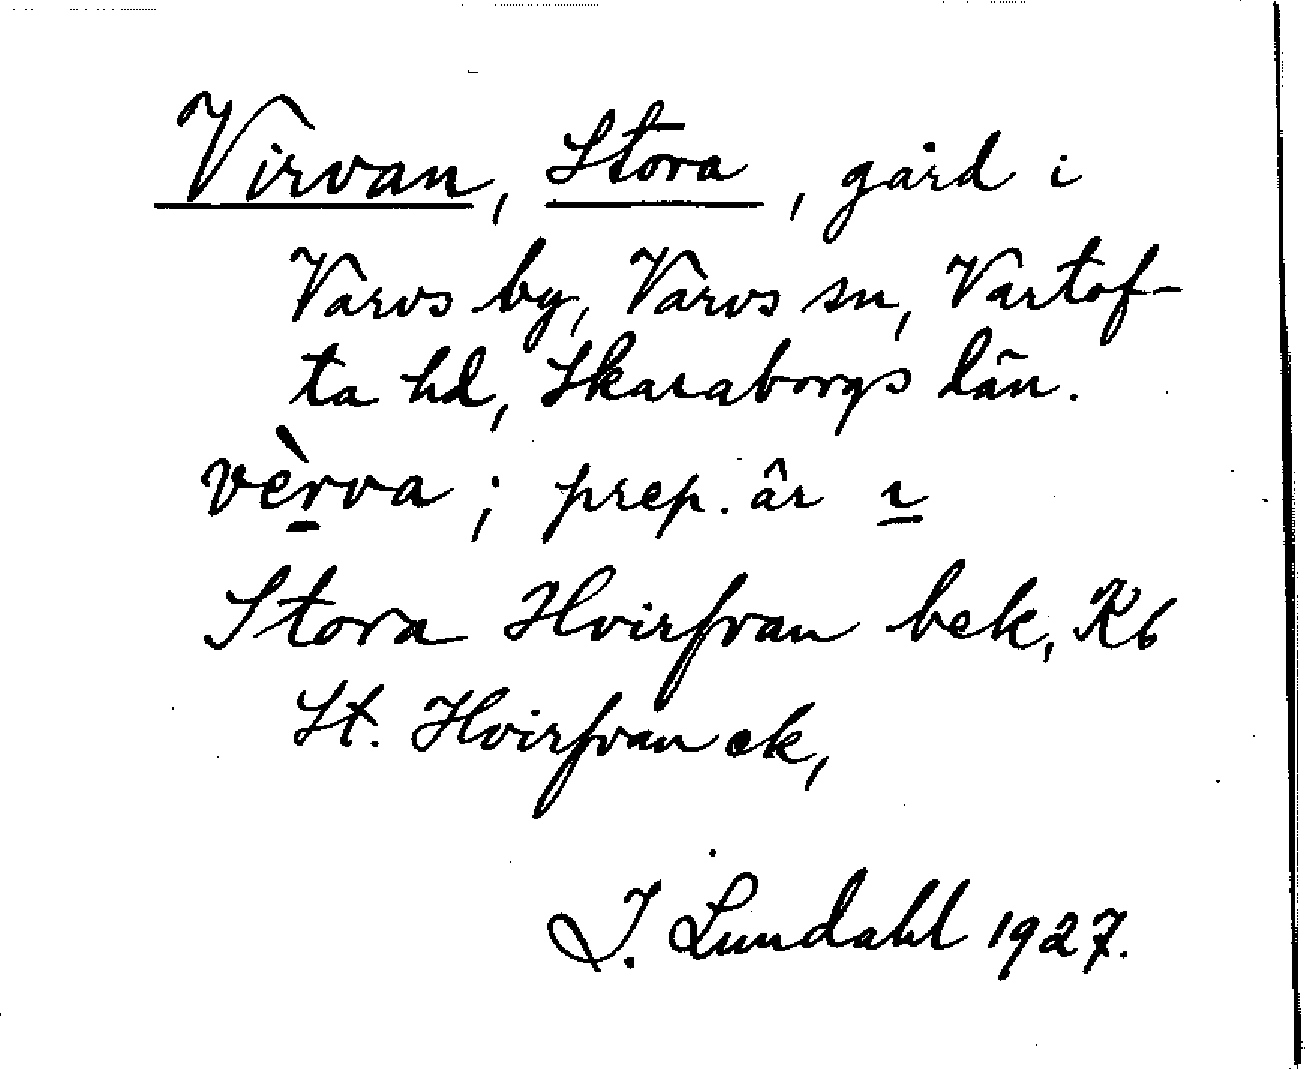 Virvan, Stora, gård i
Varvs by, Varvs sn, Vartof-
ta hd, Skaraborgs län.
vèrva; prep. är ı
Stora Hvirfvan bek, Kb
St. Hvirfvan ek,
I. Lundahl 1927.